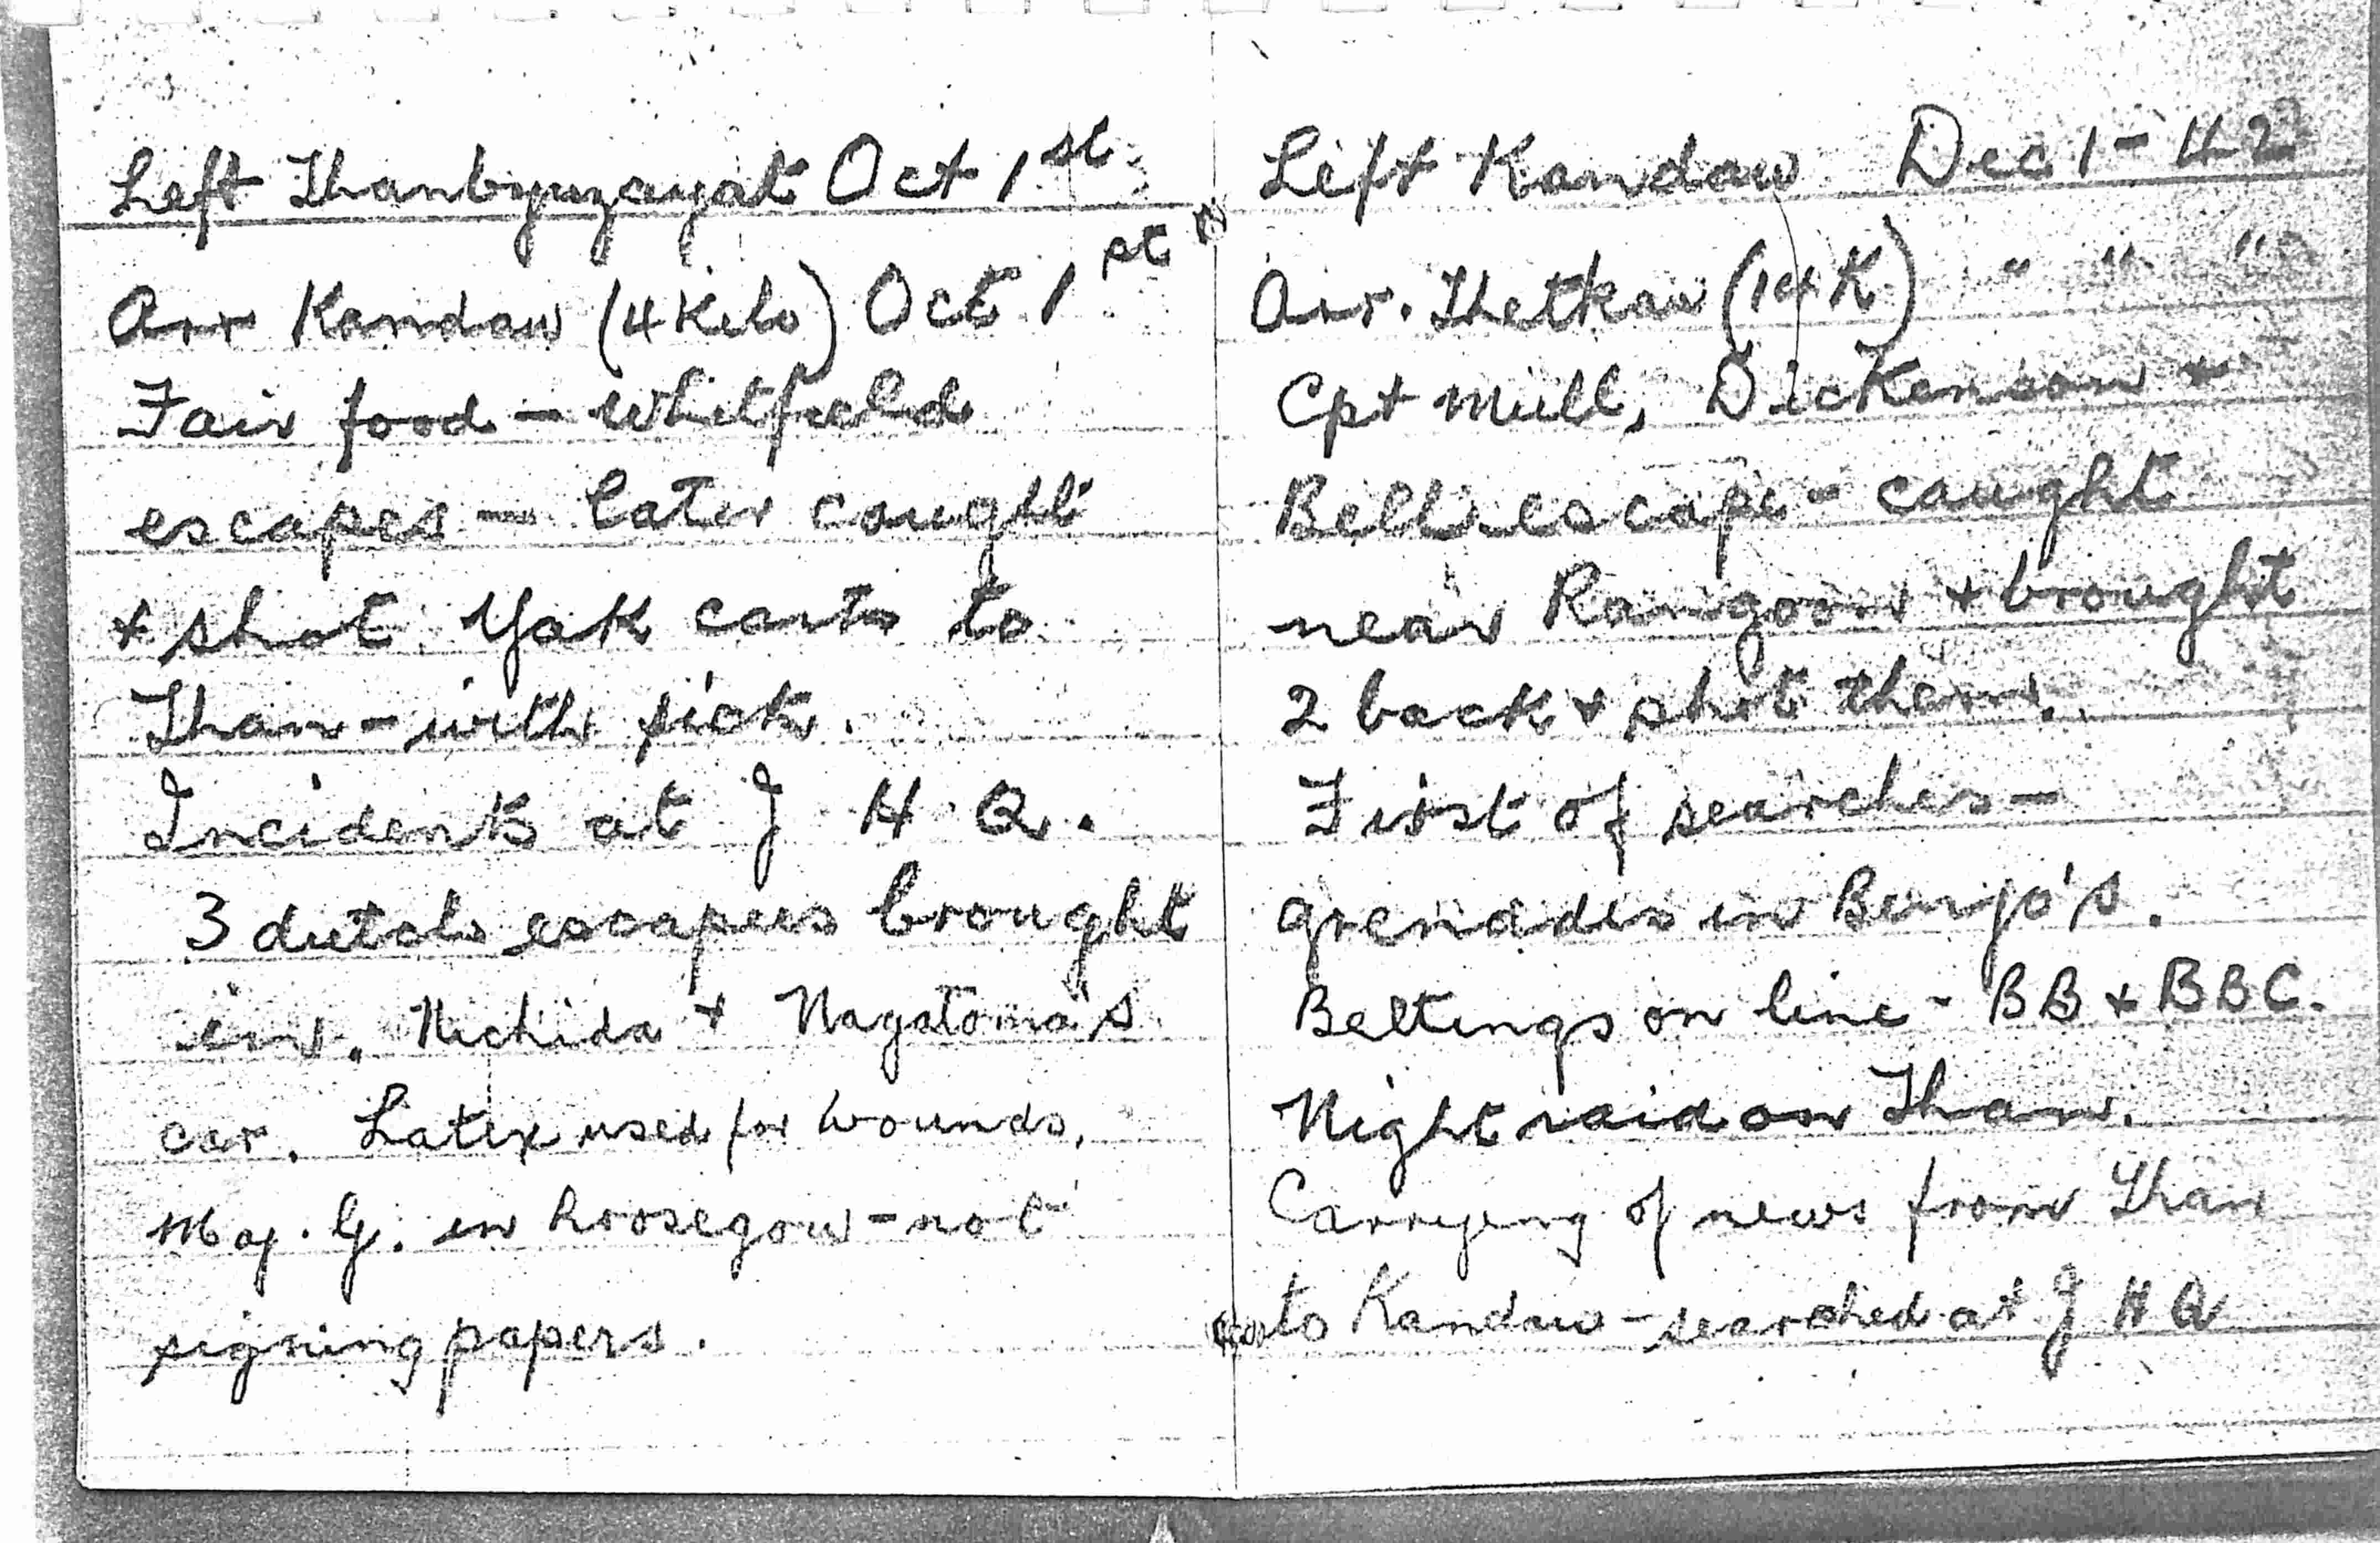 Left Thanbyuzayat Oct 1st
Arr Kandaw (4 Kilo) Oct 1st
Fair food - Whitfield
escapes - later caught
+ shot. Yak carts to
Than - with sick.
Incidents at J H Q.
3 dutch escapees brought
in. Nichida + Nagatoma's
car. Latex used for wounds.
Maj. G. in hoosegow - not
signing papers.
Left Kandaw Dec 1 - 42
Arr. Thetkaw (14 K) " " "
Cpt Mull, Dickenson +
Bell escape - caught
near Rangoon + brought
2 back + shot them.
First of searches -
grenades in Benjo's.
Beltings on line - BB + BBC.
Night raid on Than.
Carrying of news from Than
to Kandaw - searched at J H Q